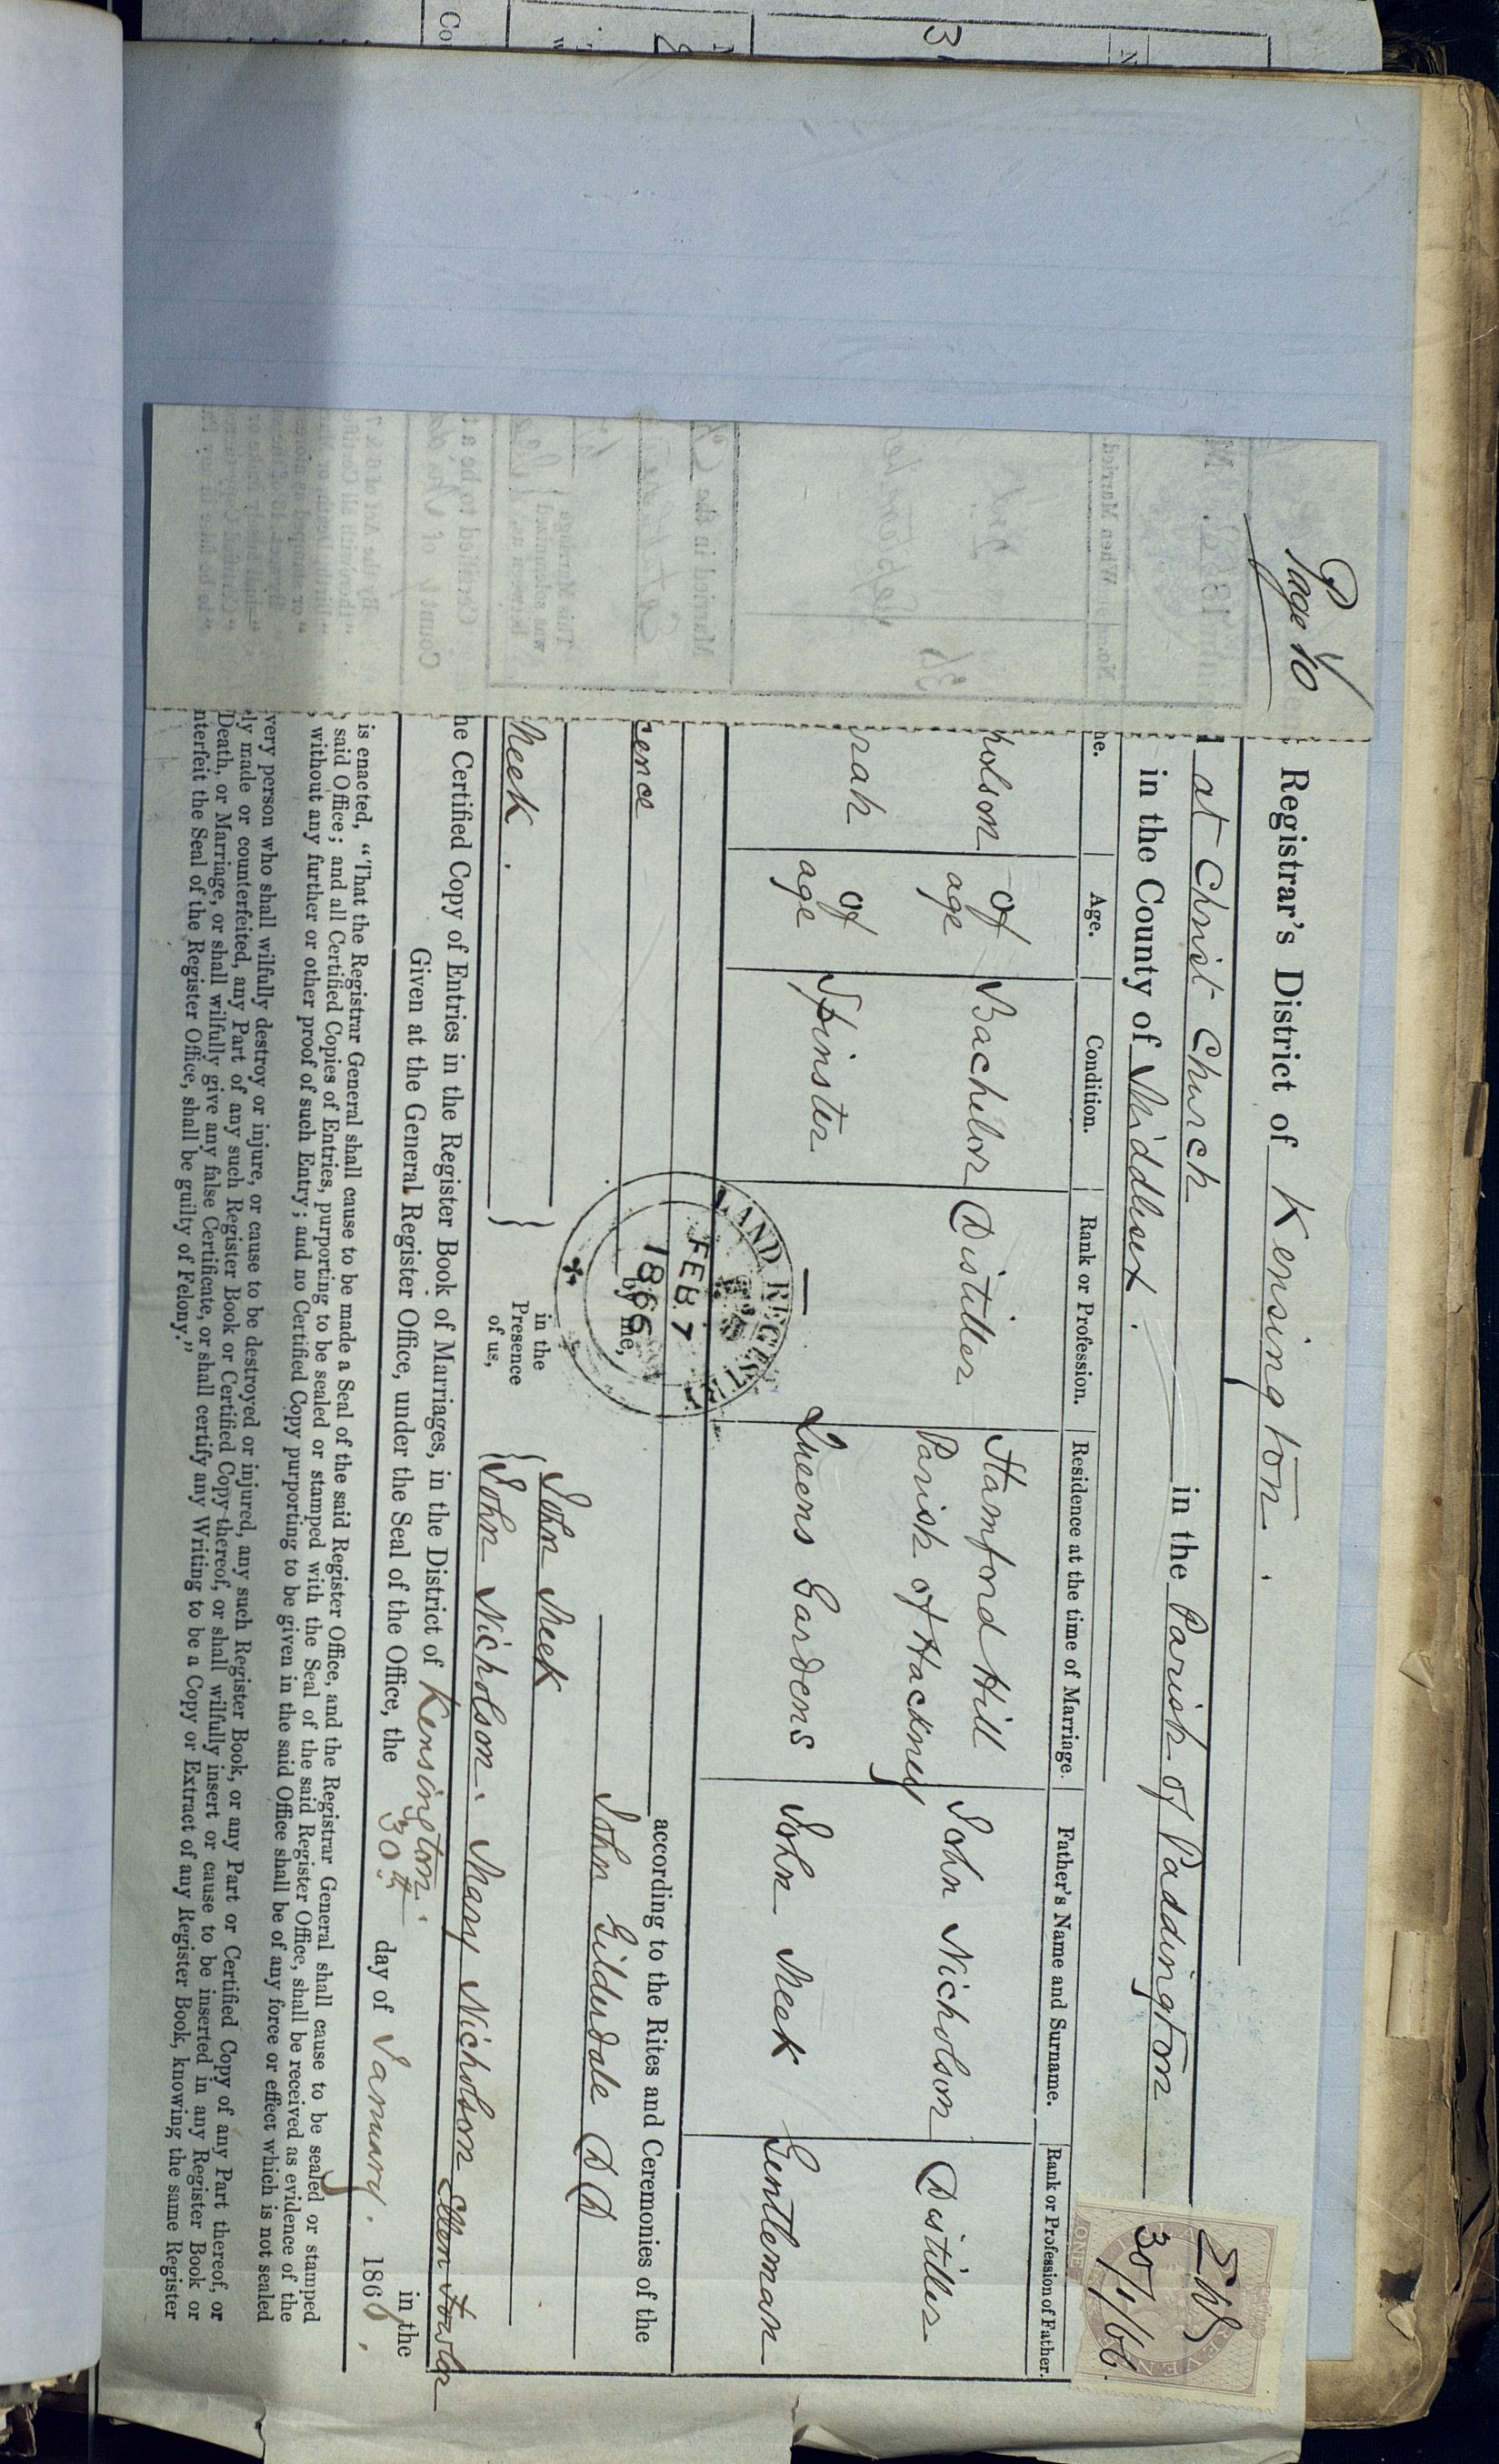 Page 40
Registrar's District of Kensington.
at Christ Church in the Parish of Paddington
in the County of Middlesex.
E W S
30/1/66.
ONE
REVEN
Age. Condition. Rank or Profession. Residence at the time of Marriage. Father's Name and Surname. Rank or Profession of Father.
holson of age Bachelor Distiller Stamford Hill Parish of Hackney John Nicholson Distiller
rah of age Spinster — Queens Gardens John Meek Gentleman
LAND REGIST
FEB. 7
1866
according to the Rites and Ceremonies of the
cence by me, John Gilderdale D D
in the Presence of us,
John Meek
Meek. John Nicholson. Mary Nicholson Ellen Fowler
he Certified Copy of Entries in the Register Book of Marriages, in the District of Kensington. in the
Given at the General Register Office, under the Seal of the Office, the 30th day of January. 1866.
is enacted, "That the Registrar General shall cause to be made a Seal of the said Register Office, and the Registrar General shall cause to be sealed or stamped
said Office; and all Certified Copies of Entries, purporting to be sealed or stamped with the Seal of the said Register Office, shall be received as evidence of the
without any further or other proof of such Entry; and no Certified Copy purporting to be given in the said Office shall be of any force or effect which is not sealed
very person who shall wilfully destroy or injure, or cause to be destroyed or injured, any such Register Book, or any Part or Certified Copy of any Part thereof, or
ly made or counterfeited, any Part of any such Register Book or Certified Copy thereof, or shall wilfully insert or cause to be inserted in any Register Book or
Death, or Marriage, or shall wilfully give any false Certificate, or shall certify any Writing to be a Copy or Extract of any Register Book, knowing the same Register
nterfeit the Seal of the Register Office, shall be guilty of Felony."